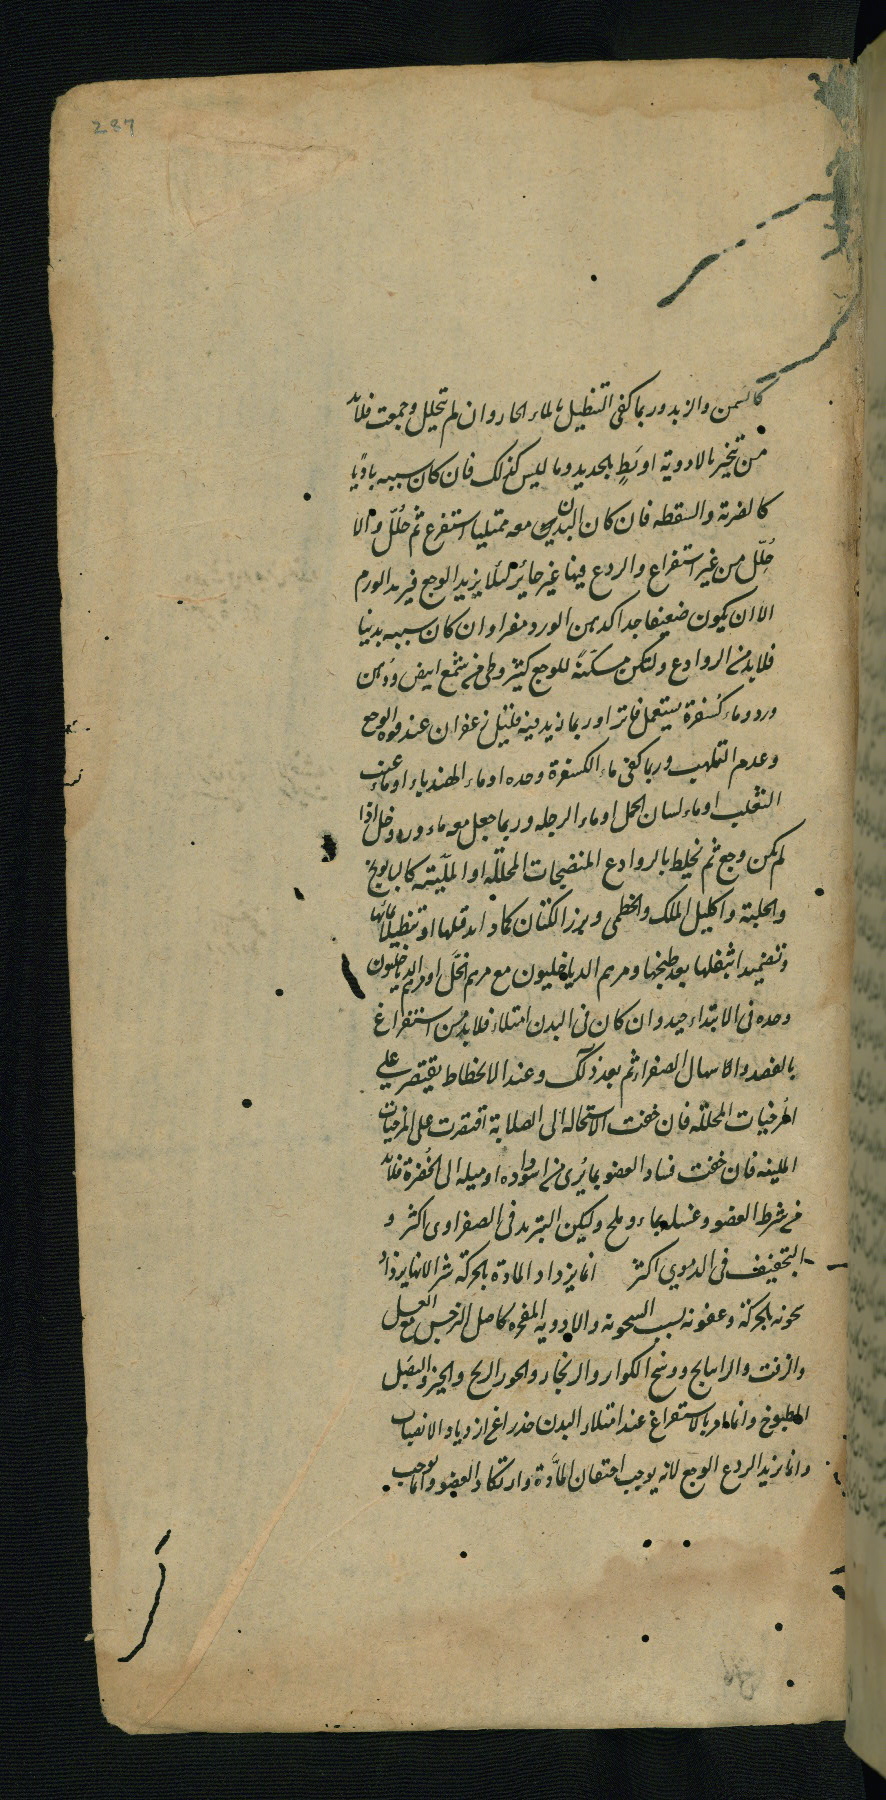 287
كالسمن والزبد وربما كفى التنطيل بالماء الحار وان لم تحلل وجمعت فلابد
من تفجير بالادوية او بَطٍ بالحديد وما ليس كذلك فان كان سببه باديًا
كالضربة والسقطة فان كان البدن معه ممتليا استفرغ ثم حُلّل والا
حُلّل من غير استفراغ والردع فيها غير جايز لئلا يزيد الوجع فيزيد الورم
الا ان يكون ضعيفا جدا كدهن الورد مفردا وان كان سببه بدنيا
فلابد من الروادع ولتكن مسكّنة للوجع كقيروطى من شمع ابيض ودهن
ورد وماء كسفرة يستعمل فاترا وربما زيد فيه قليل زعفران عند قوة الوجع
وعدم التلهب وربما كفى ماء الكسفرة وحده او ماء الهندباء او ماء عنب
الثعلب او ماء لسان الحمل او ماء الرجلة وربما جعل معه ماء ورد وخل اذا
لم يكن وجع ثم نخلط بالروادع المنضجات المحللة او المليّنة كالبابونج
والحلبة واكليل الملك والخطمى وبزر الكتان كمادا بدقيقها او تنطيلا بمائها
وتضميدا بثفلها بعد طبخها ومرهم الدياخليون مع مرهم النخل او مرهم الدياخليون
وحده فى الابتداء جيد وان كان فى البدن امتلاء فلابد من استفراغ
بالفصد والاسهال الصفراء ثم بعد ذلك وعند الانحطاط يقتصر على
المرخيات المحللة فان خفت الاستحالة الى الصلابة اقتصرت على المرخيات
الملينة فان خفت فساد العضو بما يُرى من اسوداده او ميله الى الخُضرة فلابد
من شرط العضو وغسله بماء وملح وليكن التبريد فى الصفراوى اكثر و
التجفيف فى الدموي اكثر انما يزداد المادة بالحركة شرا لانها يزداد
سخونة بالحركة وعفونة بسبب السخونة والادوية المفجرة كاصل النرجس مع العسل
والزفت والراتيانج ووسخ الكوار والزنجار والخبز والبصل
المطبوخ وانما امر بالاستفراغ عند امتلاء البدن حذرا عن ازدياد الانصباب
وانما يزيد الردع الوجع لانه يوجب احتقان المادّة وارتكاد العضو وانما يوجب